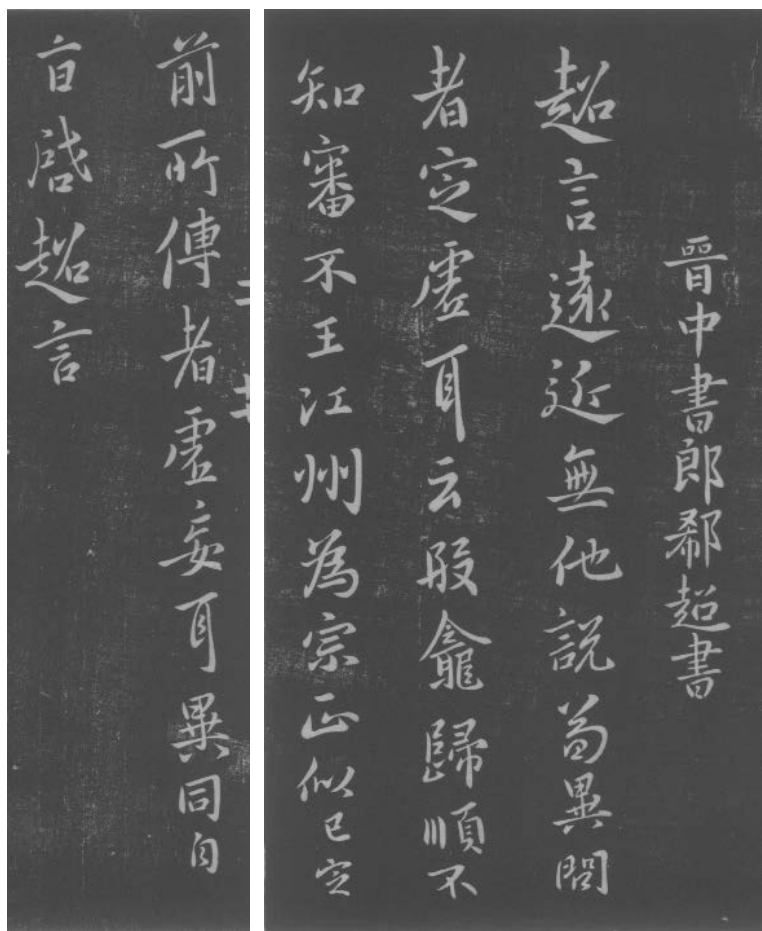 晉中書郎郗超書
超言遠近無他説異問
者定虛耳云段龕歸順不
知審不王江州為宗正似已定
前所傳者虛妄耳異同自
啓超言